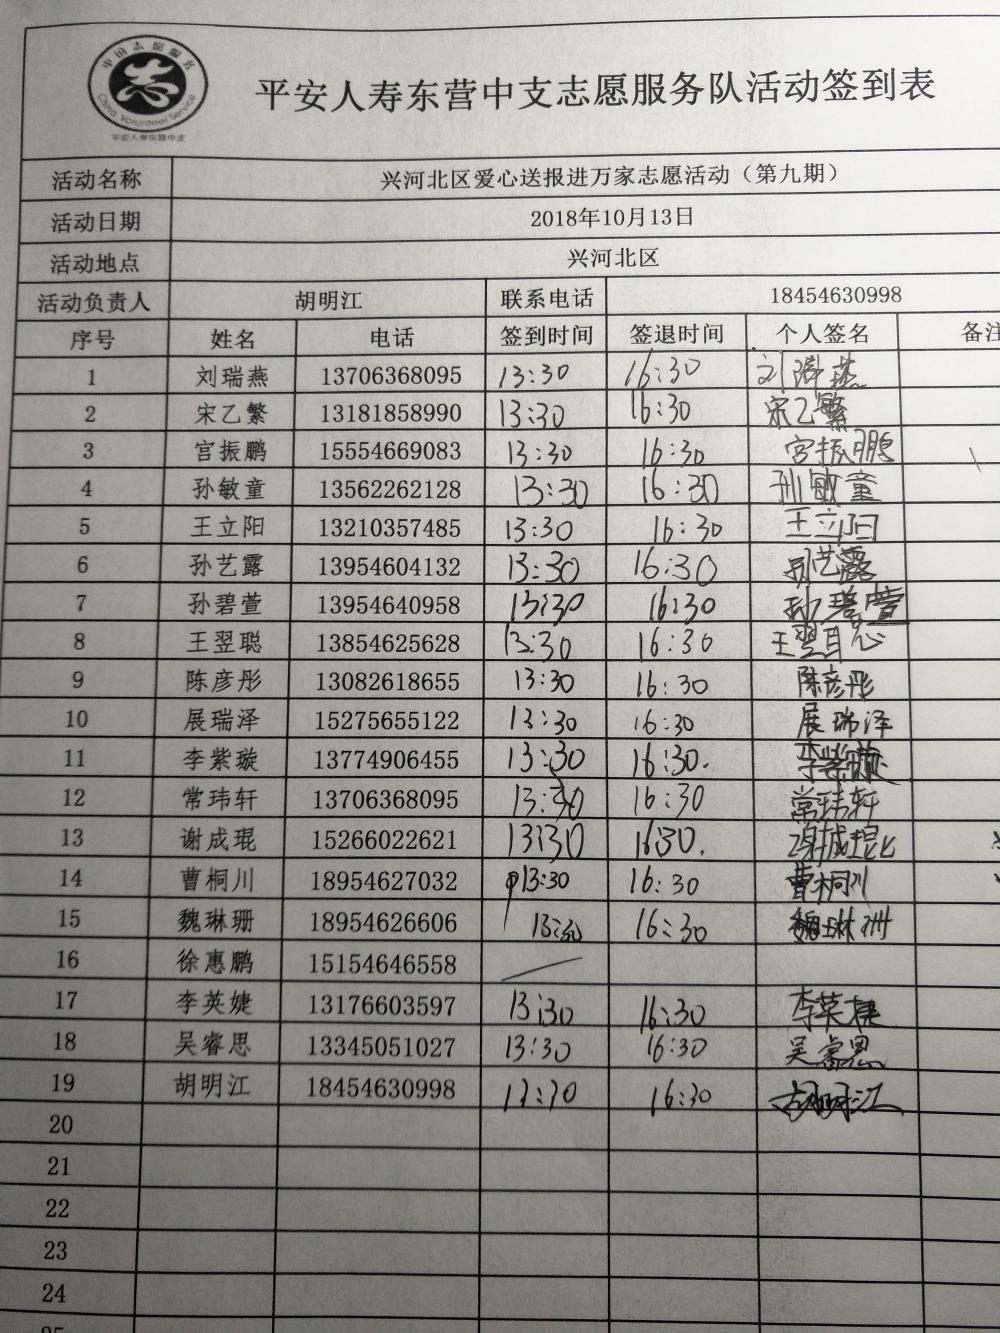 中国志愿服务
China Volunteer Service
平安人寿东营中支
平安人寿东营中支志愿服务队活动签到表
活动名称 兴河北区爱心送报进万家志愿活动（第九期）
活动日期 2018年10月13日
活动地点 兴河北区
活动负责人 胡明江 联系电话 18454630998
序号 姓名 电话 签到时间 签退时间 个人签名 备注
1 刘瑞燕 13706368095 13:30 16:30 刘瑞燕
2 宋乙繁 13181858990 13:30 16:30 宋乙繁
3 宫振鹏 15554669083 13:30 16:30 宫振鹏
4 孙敏童 13562262128 13:30 16:30 孙敏童
5 王立阳 13210357485 13:30 16:30 王立阳
6 孙艺露 13954604132 13:30 16:30 孙艺露
7 孙碧萱 13954640958 13:30 16:30 孙碧萱
8 王翌聪 13854625628 13:30 16:30 王翌聪
9 陈彦彤 13082618655 13:30 16:30 陈彦彤
10 展瑞泽 15275655122 13:30 16:30 展瑞泽
11 李紫璇 13774906455 13:30 16:30. 李紫璇
12 常玮轩 13706368095 13:30 16:30 常玮轩
13 谢成琨 15266022621 13:30 16:30. 谢成琨
14 曹桐川 18954627032 13:30 16:30 曹桐川
15 魏琳珊 18954626606 13:30 16:30 魏琳珊
16 徐惠鹏 15154646558
17 李英婕 13176603597 13:30 16:30 李英婕
18 吴睿思 13345051027 13:30 16:30 吴睿思
19 胡明江 18454630998 13:30 16:30 胡明江
20
21
22
23
24